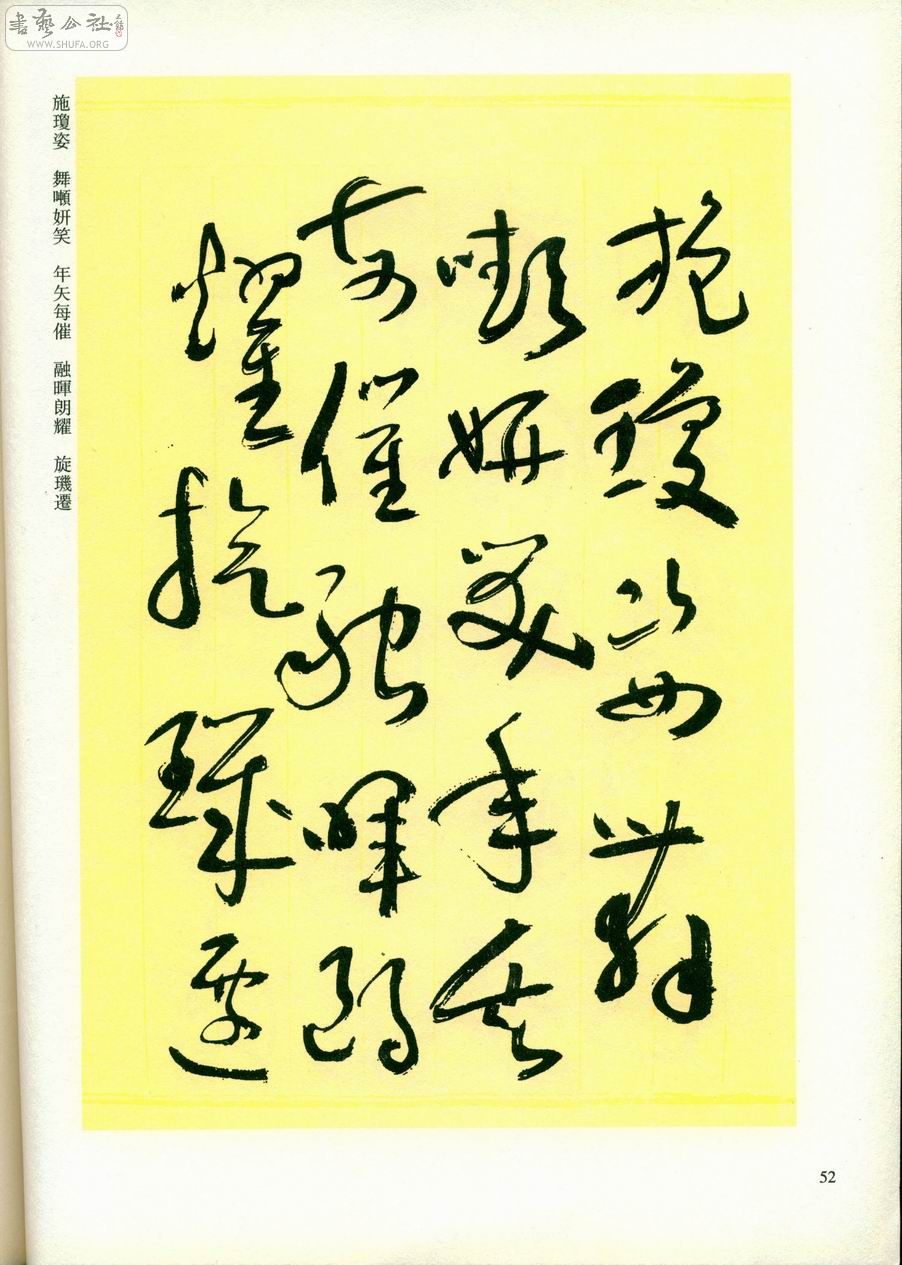 書藝公社
WWW.SHUFA.ORG
施瓊姿 舞嚬妍笑 年矢每催 融暉朗耀 旋璣遷
施瓊姿舞
嚬妍笑年矢
每催融暉朗
耀旋璣遷
52